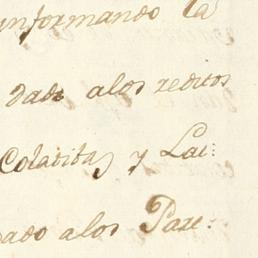 informando la
dado alos reditos
Colativas y Lai:
dado alos Pare: